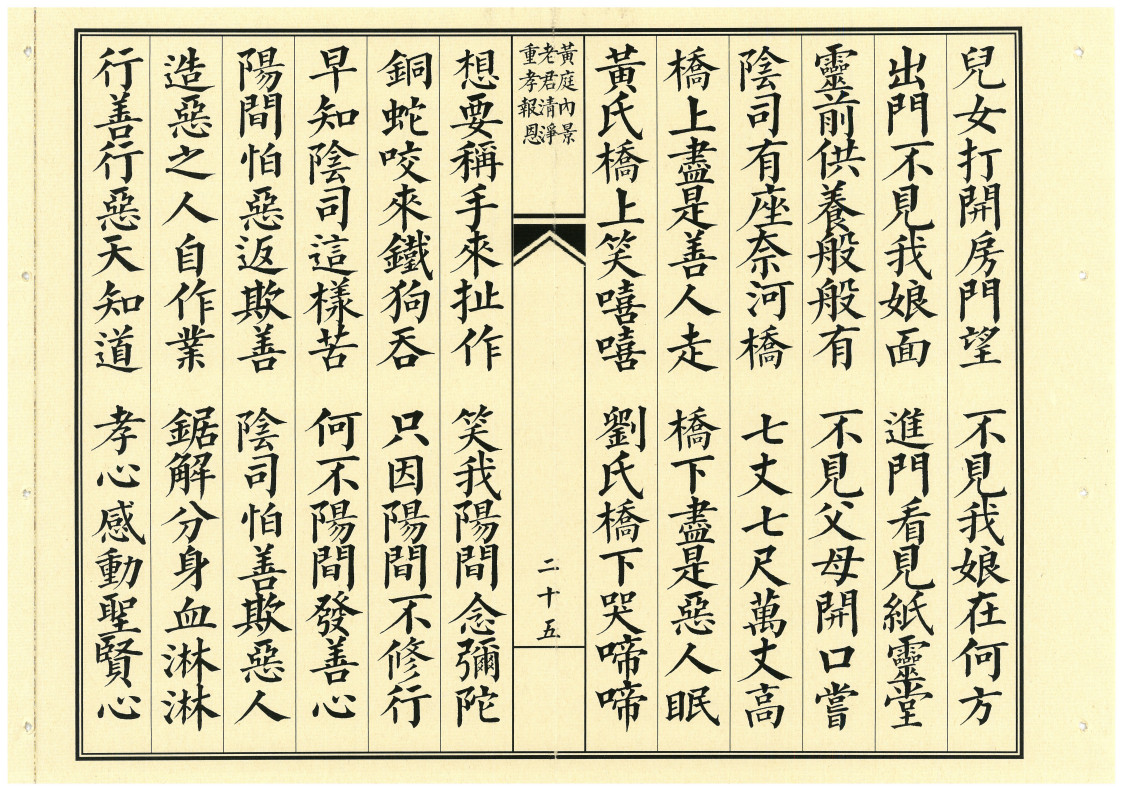 兒女打開房門望　不見我娘在何方
出門不見我娘面　進門看見紙靈堂
靈前供養般般有　不見父母開口嘗
陰司有座奈河橋　七丈七尺萬丈高
橋上盡是善人走　橋下盡是惡人眠
黃氏橋上笑嘻嘻　劉氏橋下哭啼啼
黃庭內景
老君清淨
重孝報恩
二十五
想要稱手來扯作　笑我陽間念彌陀
銅蛇咬來鐵狗吞　只因陽間不修行
早知陰司這樣苦　何不陽間發善心
陽間怕惡返欺善　陰司怕善欺惡人
造惡之人自作業　鋸解分身血淋淋
行善行惡天知道　孝心感動聖賢心